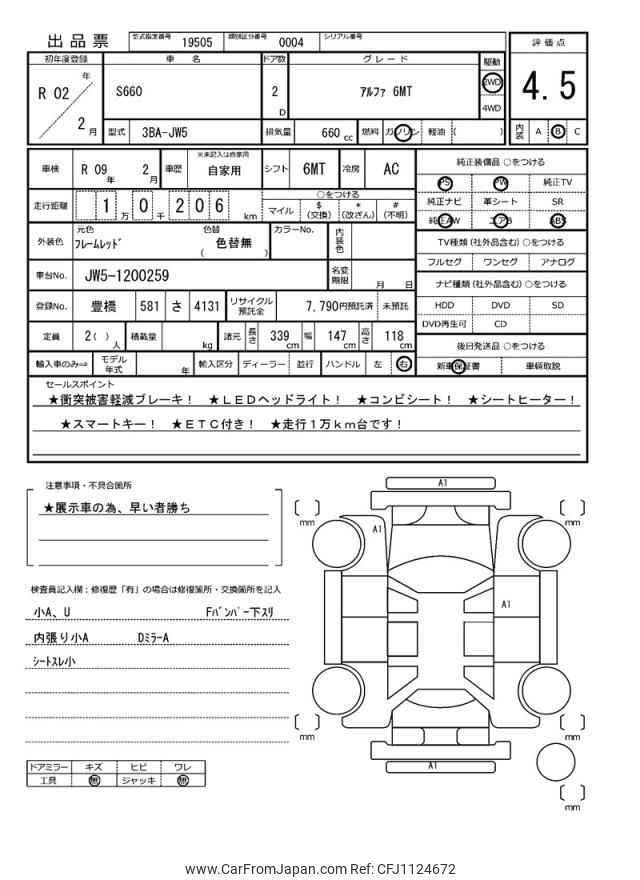 出品票 型式指定番号 19505 類別区分番号 0004 シリアル番号
初年度登録 車名 ドア数 グレード 駆動 評価点
R 02 年 2 月 S660 2 D アルファ 6MT 2WD 4WD 4.5
型式 3BA-JW5 排気量 660 cc 燃料 ガソリン 軽油 ( ) 内装 A B C
車検 R 09 年 2 月 車歴 ※未記入は自家用 自家用 シフト 6MT 冷房 AC
走行距離 1 万 0 千 2 0 6 km ○をつける マイル $ (交換) * (改ざん) # (不明)
外装色 元色 フレームレッド 色替 色替無 ( ) カラーNo. 内装色
車台No. JW5-1200259 名変期限 月 日
登録No. 豊橋 581 さ 4131 リサイクル預託金 7,790円預託済 未預託
定員 2( ) 人 積載量 kg 諸元 長さ 339 cm 幅 147 cm 高さ 118 cm
輸入車のみ⇒ モデル年式 年 輸入区分 ディーラー 並行 ハンドル 左 右
純正装備品 ○をつける
PS PW 純正TV
純正ナビ 革シート SR
純正AW エアB ABS
TV種類 (社外品含む) ○をつける
フルセグ ワンセグ アナログ
ナビ種類 (社外品含む) ○をつける
HDD DVD SD
DVD再生可 CD
後日発送品 ○をつける
新車保証書 車輌取説
セールスポイント
★衝突被害軽減ブレーキ! ★LEDヘッドライト! ★コンビシート! ★シートヒーター!
★スマートキー! ★ETC付き! ★走行1万km台です!
注意事項・不具合箇所
★展示車の為、早い者勝ち
検査員記入欄：修復歴「有」の場合は修復箇所・交換箇所を記入
小A、U Fバンパー下スリ
内張り小A DミラーA
シートスレ小
ドアミラー キズ ヒビ ワレ
工具 無 ジャッキ 無
A1
A1
A1
A1
mm
mm
mm
mm
mm
www.CarFromJapan.com Ref: CFJ1124672